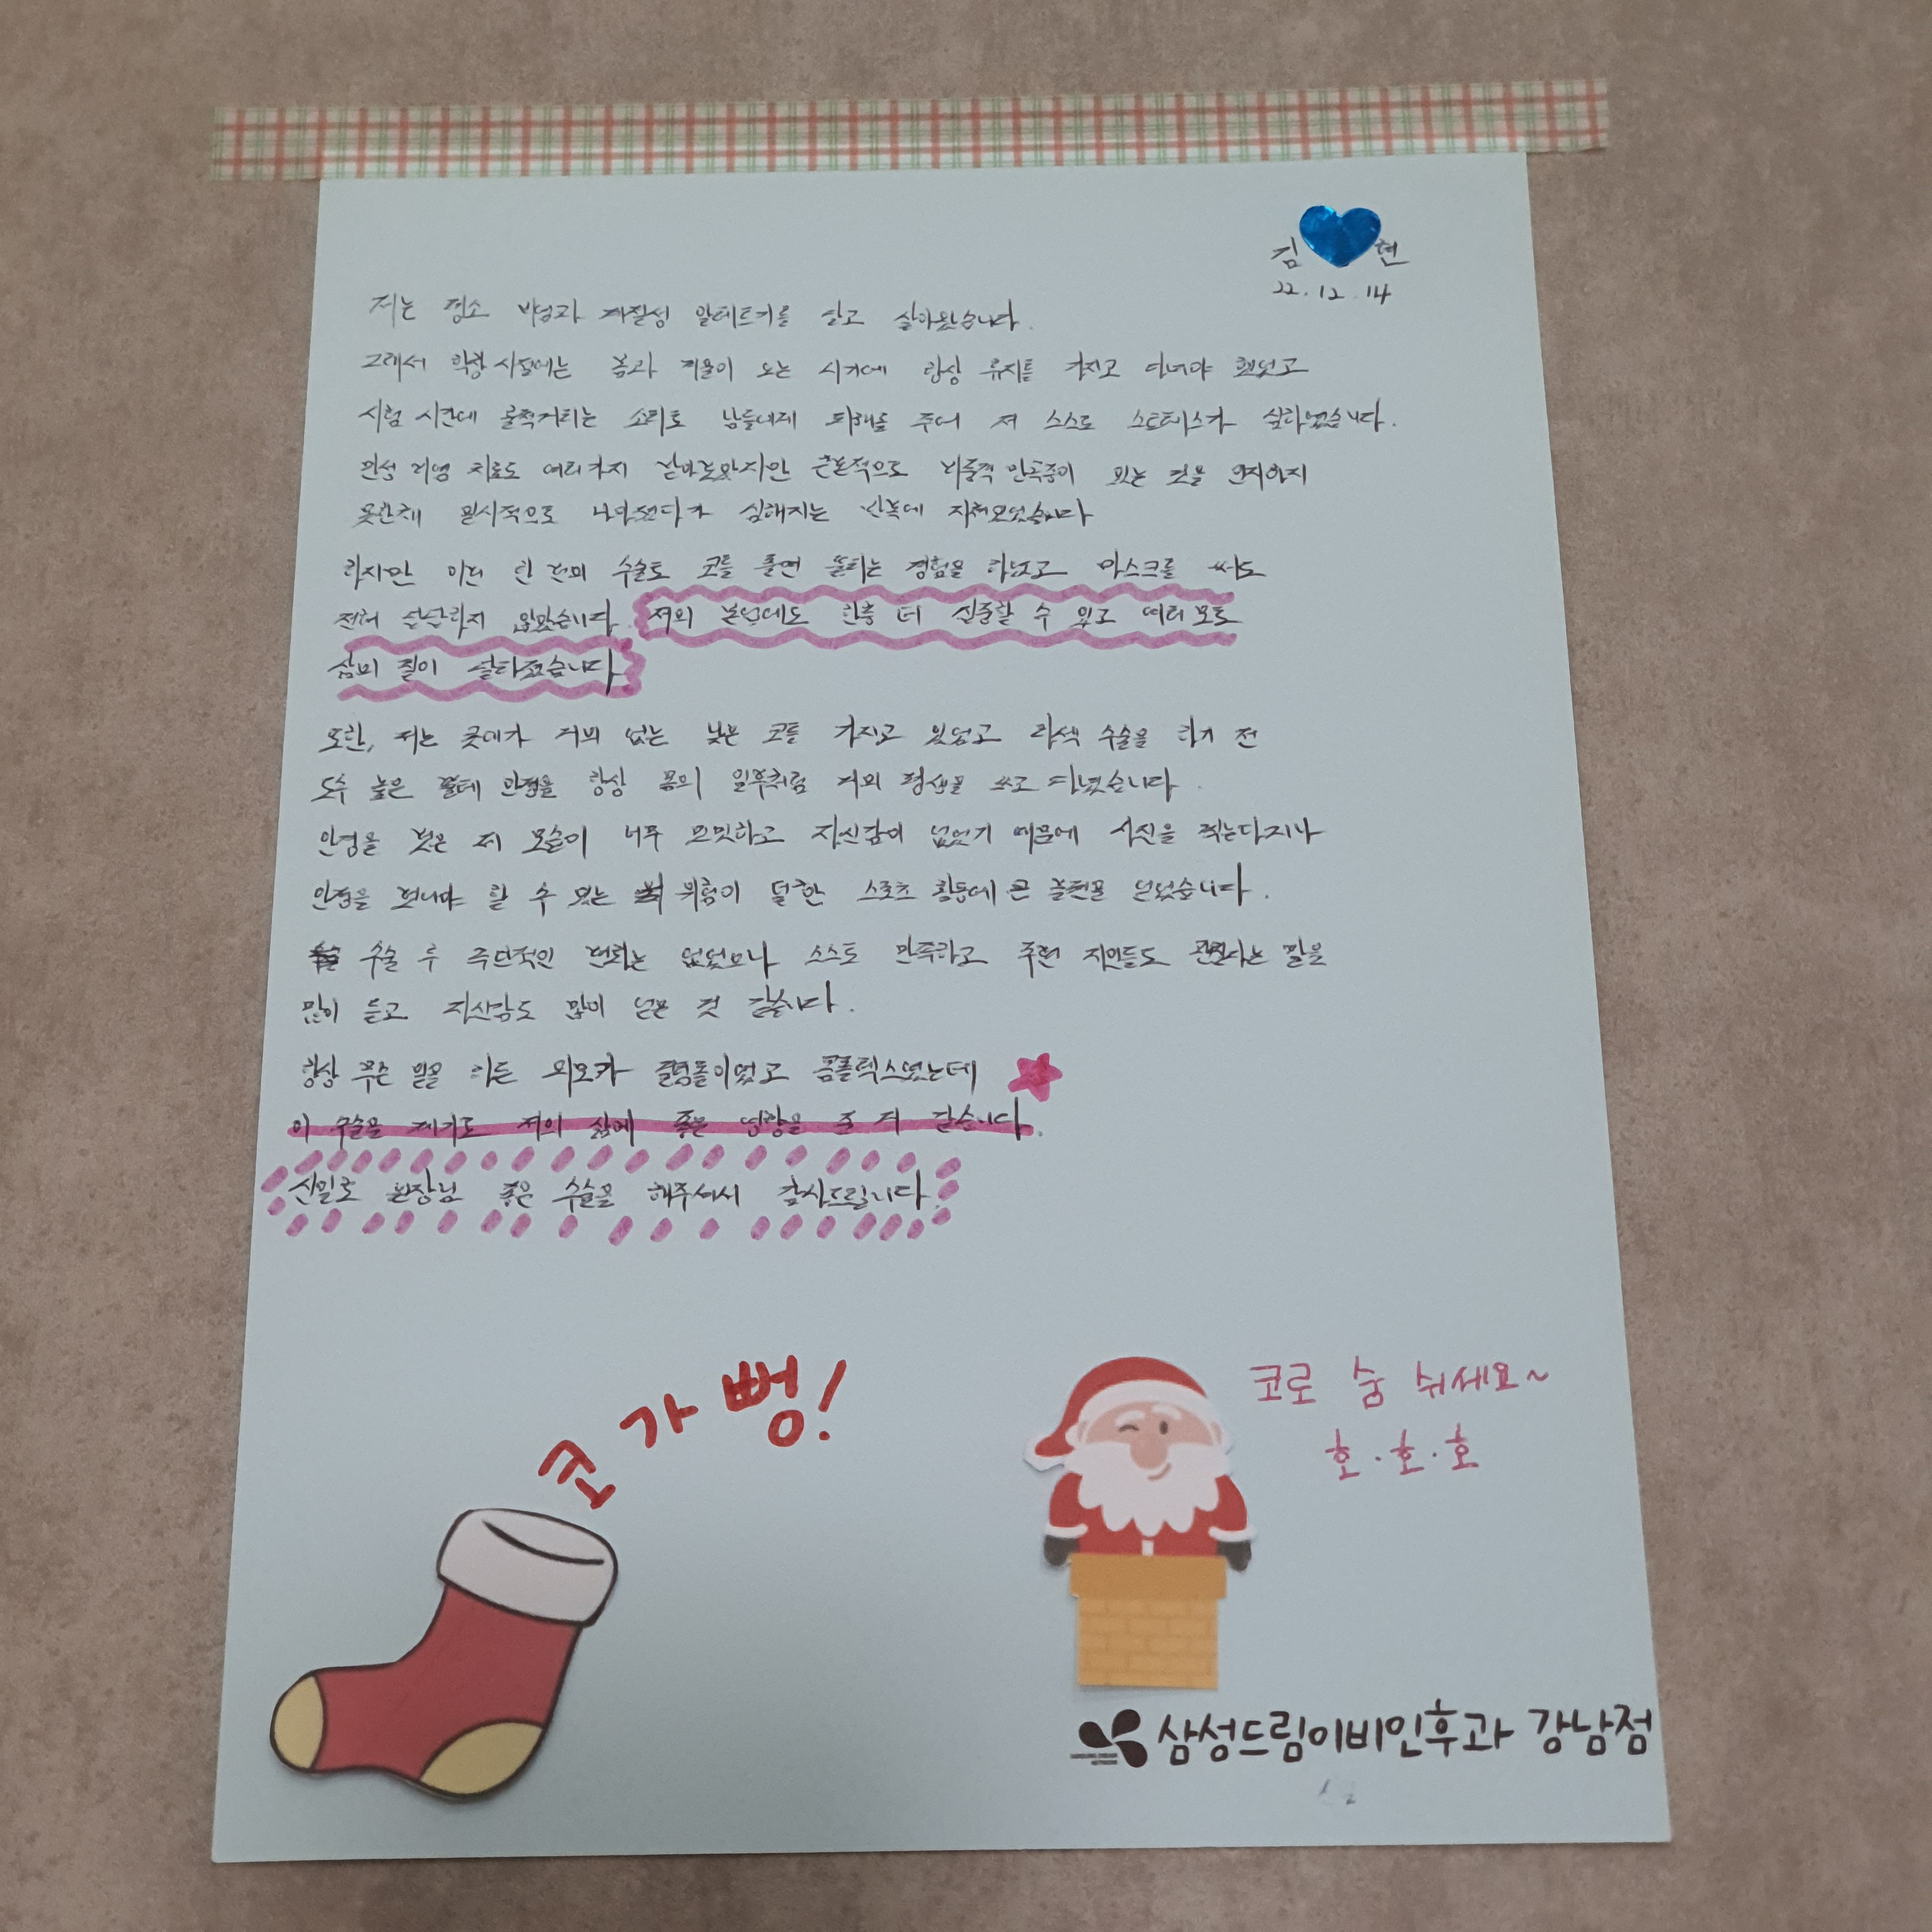 김 현
22.12.14
저는 평소 비염과 체질성 알레르기를 앓고 살아왔습니다.
그래서 학창시절에는 봄과 겨울이 오는 시기에 항상 휴지를 가지고 다녀야 했었고
시험 시간에 훌쩍거리는 소리로 남들에게 피해를 주어 저 스스로 스트레스가 심하였습니다.
만성 비염 치료도 여러가지 알아보았지만 근본적으로 비중격 만곡증이 있는 것을 인지하지
못한채 일시적으로 나아졌다가 심해지는 반복에 지쳐있었습니다
하지만 이번 한 번의 수술로 코를 풀면 뚫리는 경험을 하였고 마스크를 써도
전혀 답답하지 않았습니다. 저의 본업에도 한층 더 집중할 수 있고 여러모로
삶의 질이 달라졌습니다
또한, 저는 콧대가 거의 없는 낮은 코를 가지고 있었고 라섹 수술을 하기 전
도수 높은 뿔테 안경을 항상 몸의 일부처럼 거의 평생을 쓰고 다녔습니다.
안경을 벗은 제 모습이 너무 밋밋하고 자신감이 없었기 때문에 사진을 찍는다거나
안경을 벗어야 할 수 있는 위험이 덜한 스포츠 활동에 큰 불편을 얻었습니다.
수술 후 극단적인 변화는 없었으나 스스로 만족하고 주변 지인들도 괜찮다는 말을
많이 듣고 자신감도 많이 얻은 것 같습니다.
항상 무슨 일을 하든 외모가 걸림돌이었고 콤플렉스였는데
이 수술을 계기로 저의 삶에 좋은 영향을 준 거 같습니다.
진심으로 원장님 좋은 수술을 해주셔서 감사드립니다.
코가 뻥!
코로 숨 쉬세요~
호·호·호
삼성드림이비인후과 강남점